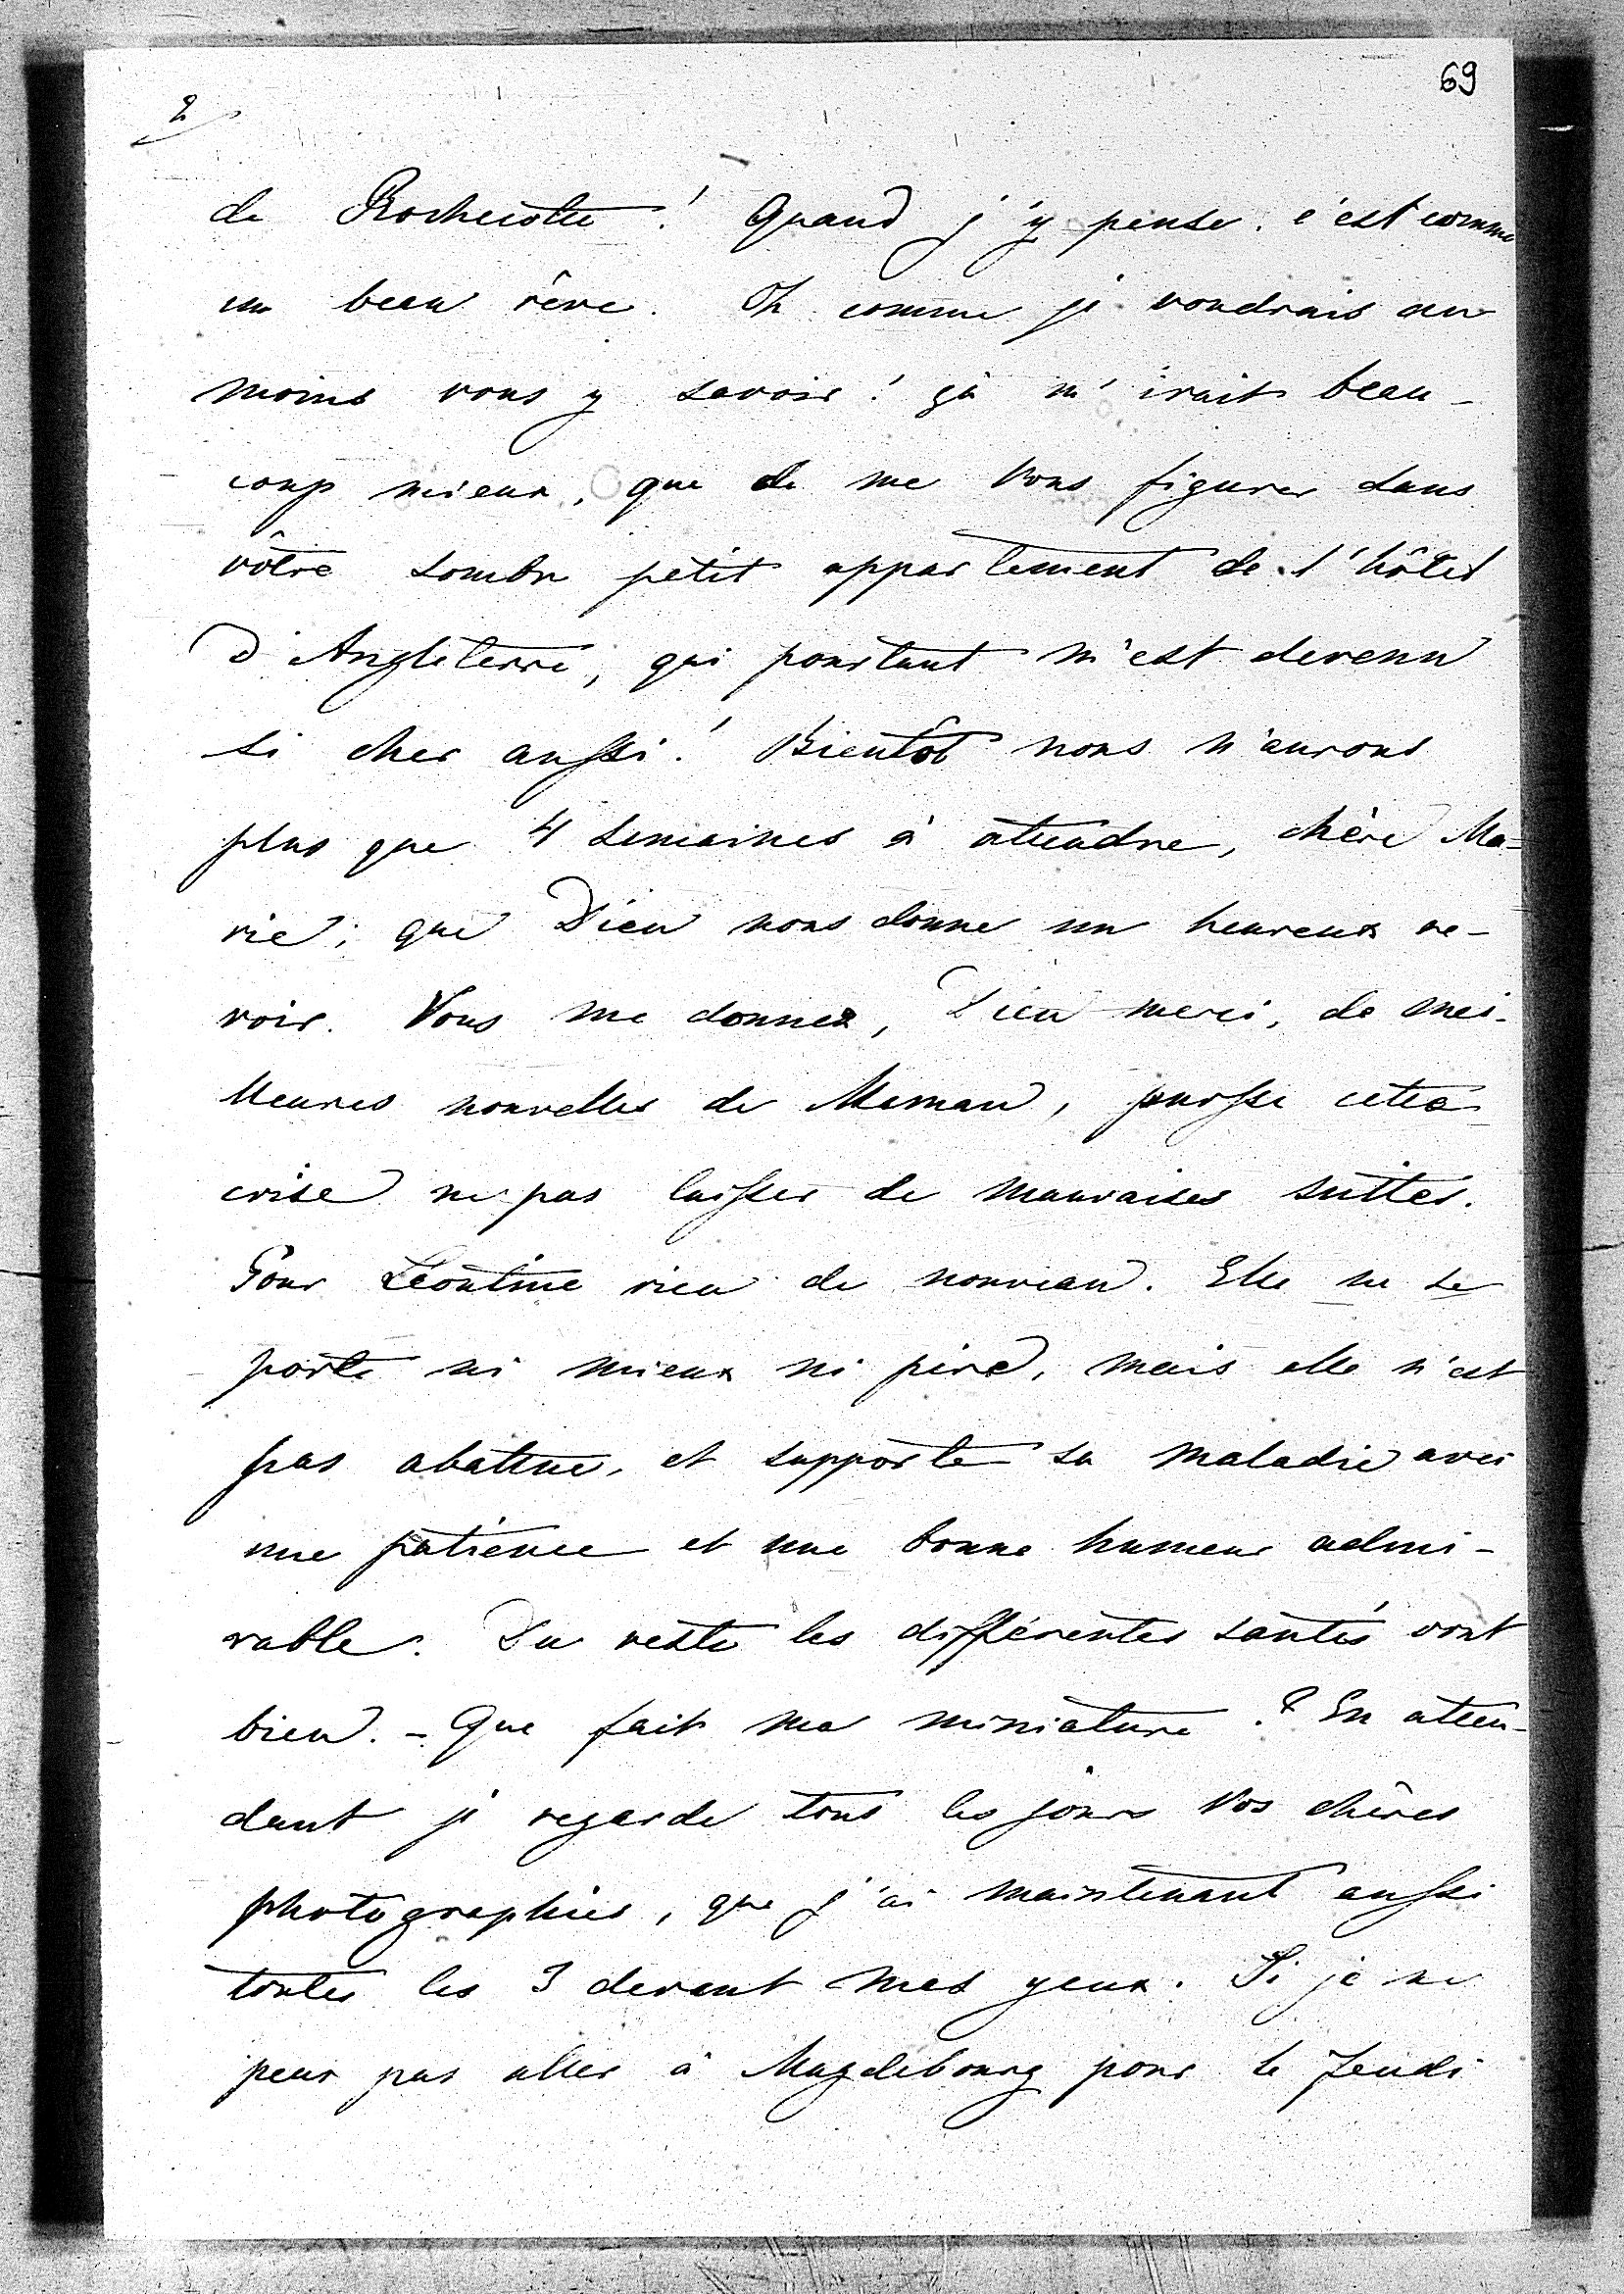 69
2
de Rochecotte! Quand j'y pense, c'est comme
un beau rêve. Oh comme je voudrais au
moins vous y savoir! çà m'irait beau-
coup mieux, que de me Vous figurer dans
vôtre sombre petit appartement de l'hôtel
d'Angleterre, qui pourtant m'est devenu
si cher aussi! Bientôt nous n'aurons
plus que 4 semaines à attendre, chère Ma=
rie; que Dieu nous donne un heureux re-
voir. Vous me donnez, Dieu merci, de meil-
leures nouvelles de Maman, puisse cette
crise ne pas laisser de mauvaises suites.
Pour Léontine rien de nouveau. Elle ne se
porte ni mieux ni pire, mais elle n'est
pas abattue, et supporte sa maladie avec
une patience et une bonne humeur admi-
rable. Du reste les différentes santés vont
bien. - Que fait ma miniature? En atten-
dant je regarde tous les jours Vos chères
photographies, que j'ai maintenant aussi
toutes les 3 devant mes yeux. Si je ne
peux pas aller à Magdebourg pour le Jeudi